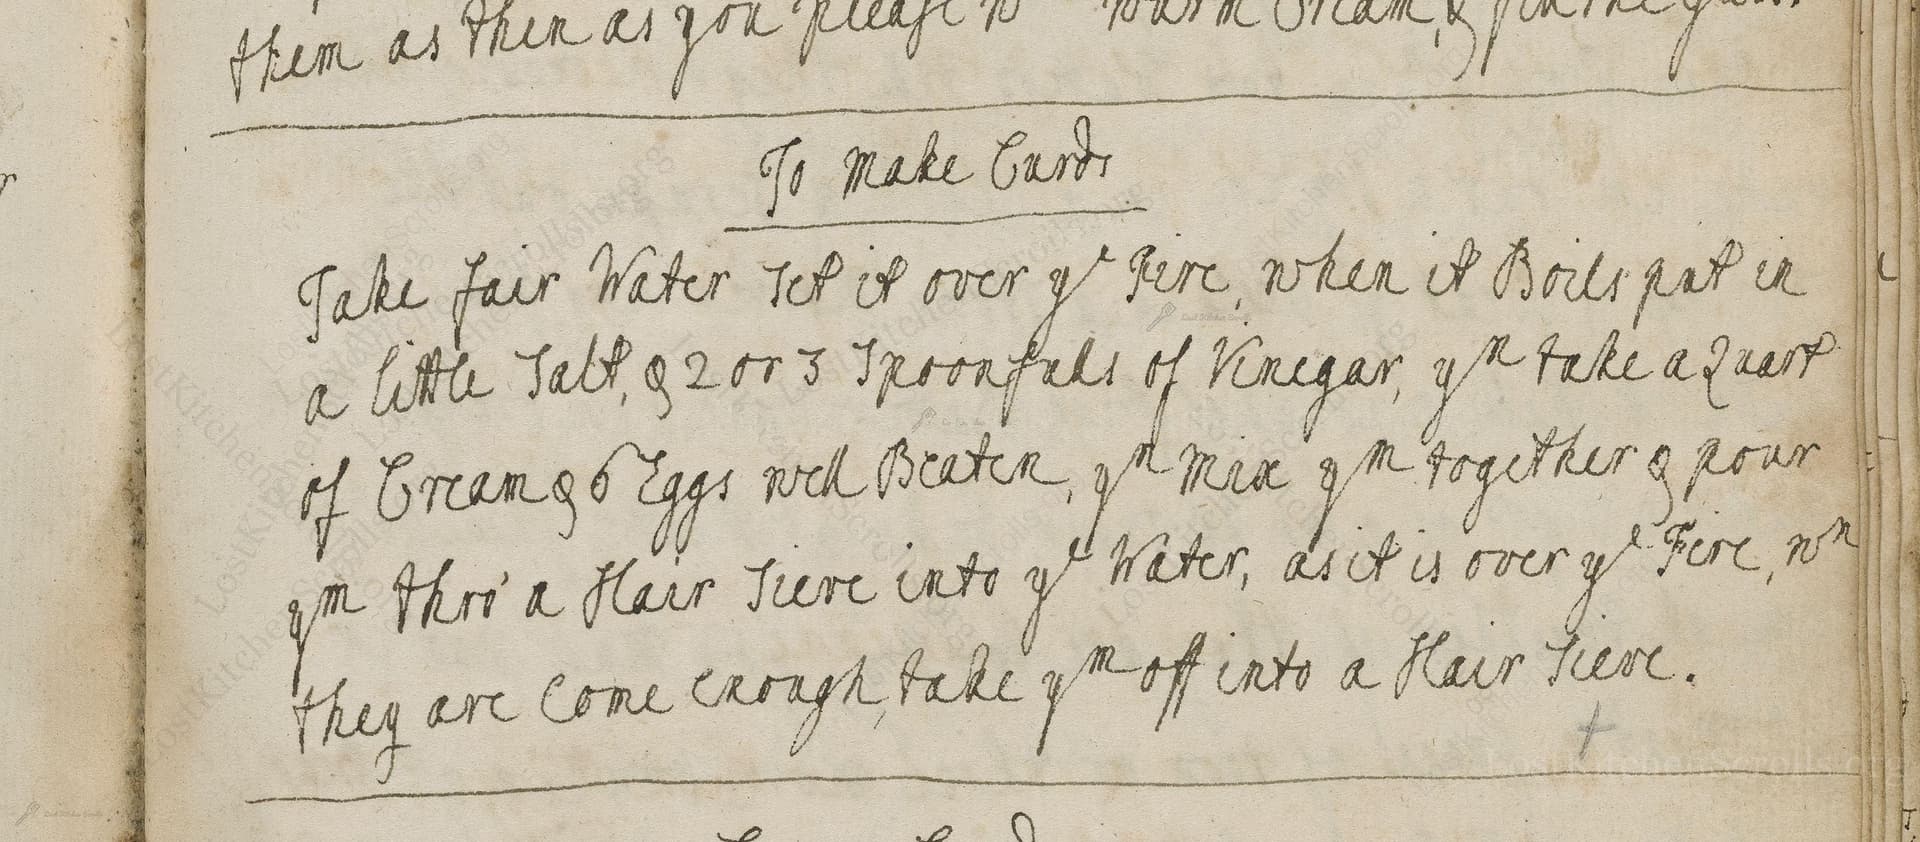 them as then as you please wth warm Cream, &
To Make Curds
Take fair Water Set it over ye Fire, when it Boils put in
a little Salt, & 2 or 3 Spoonfulls of Vinegar, yn take a Quart
of Cream & 6 Eggs well Beaten, yn Mix ym together & pour
ym thro' a Hair Sieve into ye Water, as it is over ye Fire, wn
they are Come enough, take ym off into a Hair Sieve.
LostKitchenScrolls.org